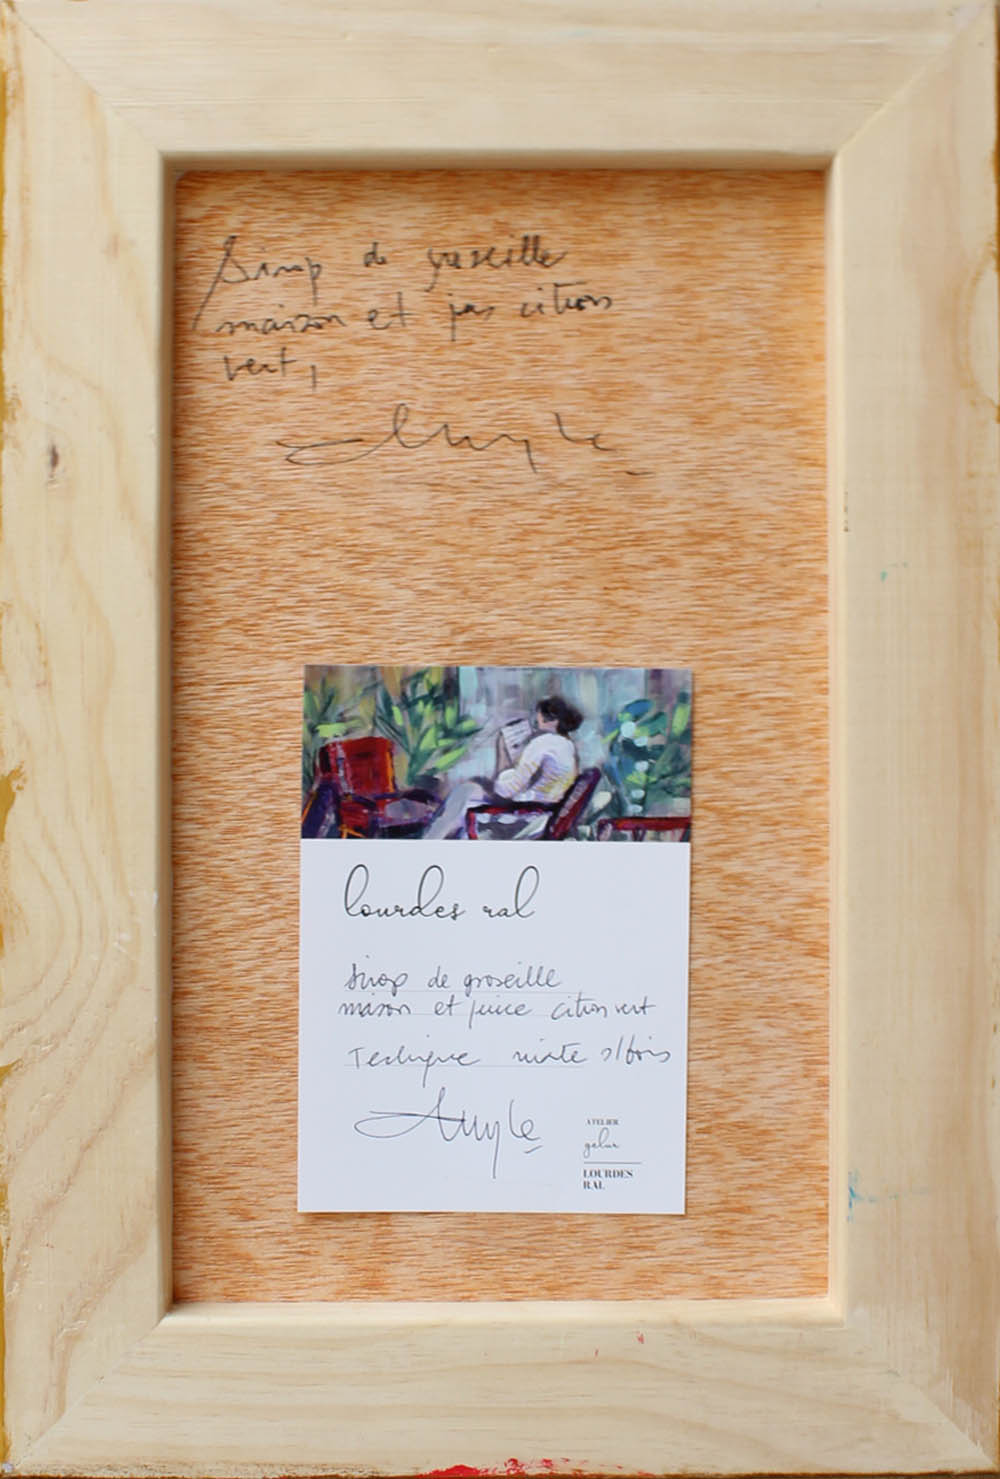 Sirop de groseille
maison et jus citron
vert,
lourdes ral
Sirop de groseille
maison et juice citron vert
Technique mixte s/bois
ATELIER
LOURDES
RAL